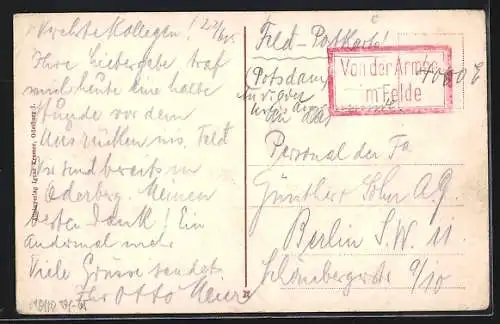 Werte Kollegen! 22/6.15.
Ihre Liebesgabe traf
mich heute eine halbe
Stunde vor dem
Ausrücken ins Feld
Wir sind bereits in
Oderberg. Meinen
besten Dank! Ein
andermal mehr
Viele Grüsse sendet
Ihr Otto Meier
Ignaz Krener, Oderberg 1.
Feld-Postkarte!
(Potsdam
Von der Armee
im Felde
An das
Personal der Fa
Günther & Sohn A.G.
Berlin S.W. 11
Schönebergerstr 9/10